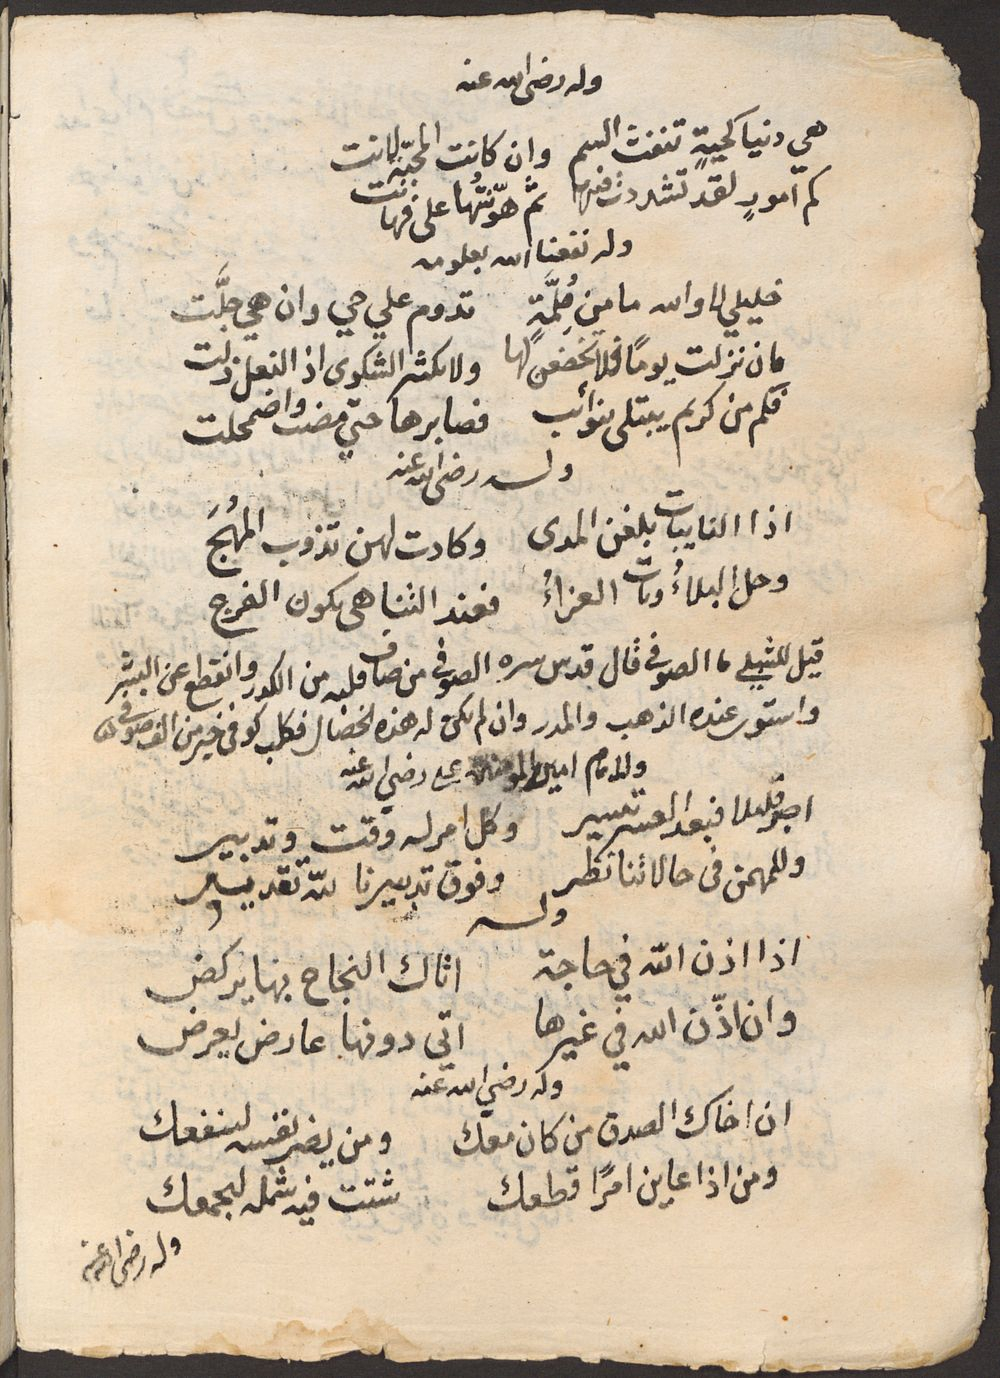 وله رضى الله عنه
هي دنيا كحيةٍ تنفث السم وان كانت المجسّة لانت
كم امورٍ لقد تشددت فيها ثم هوّنتُها علىّ فهانت
وله نفعنا الله بعلومه
خليلي لا والله ما من مُلِمَّةٍ تدوم علي حي وان هي جلَّت
فان نزلت يومًا فلا تخضعن لها ولا تكثر الشكوى اذ النعل زلت
فكم من كريم يبتلى بنوائب فصابرها حتي مضت واضمحلت
وله رضى الله عنه
اذا النايبات بلغن المدى وكادت لهن تذوب المُهَجُ
وحل البلاءُ وبان العزاءُ فعند التناهى يكون الفرج
قيل للشبلي ما الصوفي قال قدس سره الصوفي من صفا قلبه من الكدر وانقطع عن البشر
واستوى عنده الذهب والمدر وان لم تكن له هذه الخصال فكلب كوفى خير من الف صوفى
وللامام امير المومنين على رضي الله عنه
اصبر قليلا فبعد العسر تيسير وكل امر له وقت وتدبير
وللمهيمن في حالاتنا نظر وفوق تدبيرنا لله تقدير
وله
اذا اذن الله في حاجة اتاك النجاح بها يركض
وان اذّن الله في غيرها اتي دونها عارض يعرض
وله رضي الله عنه
ان اخاك الصدق من كان معك ومن يضر نفسه لينفعك
ومن اذا عاين امرًا قطعك شتت فيه شمله ليجمعك
وله رضى الله عنه